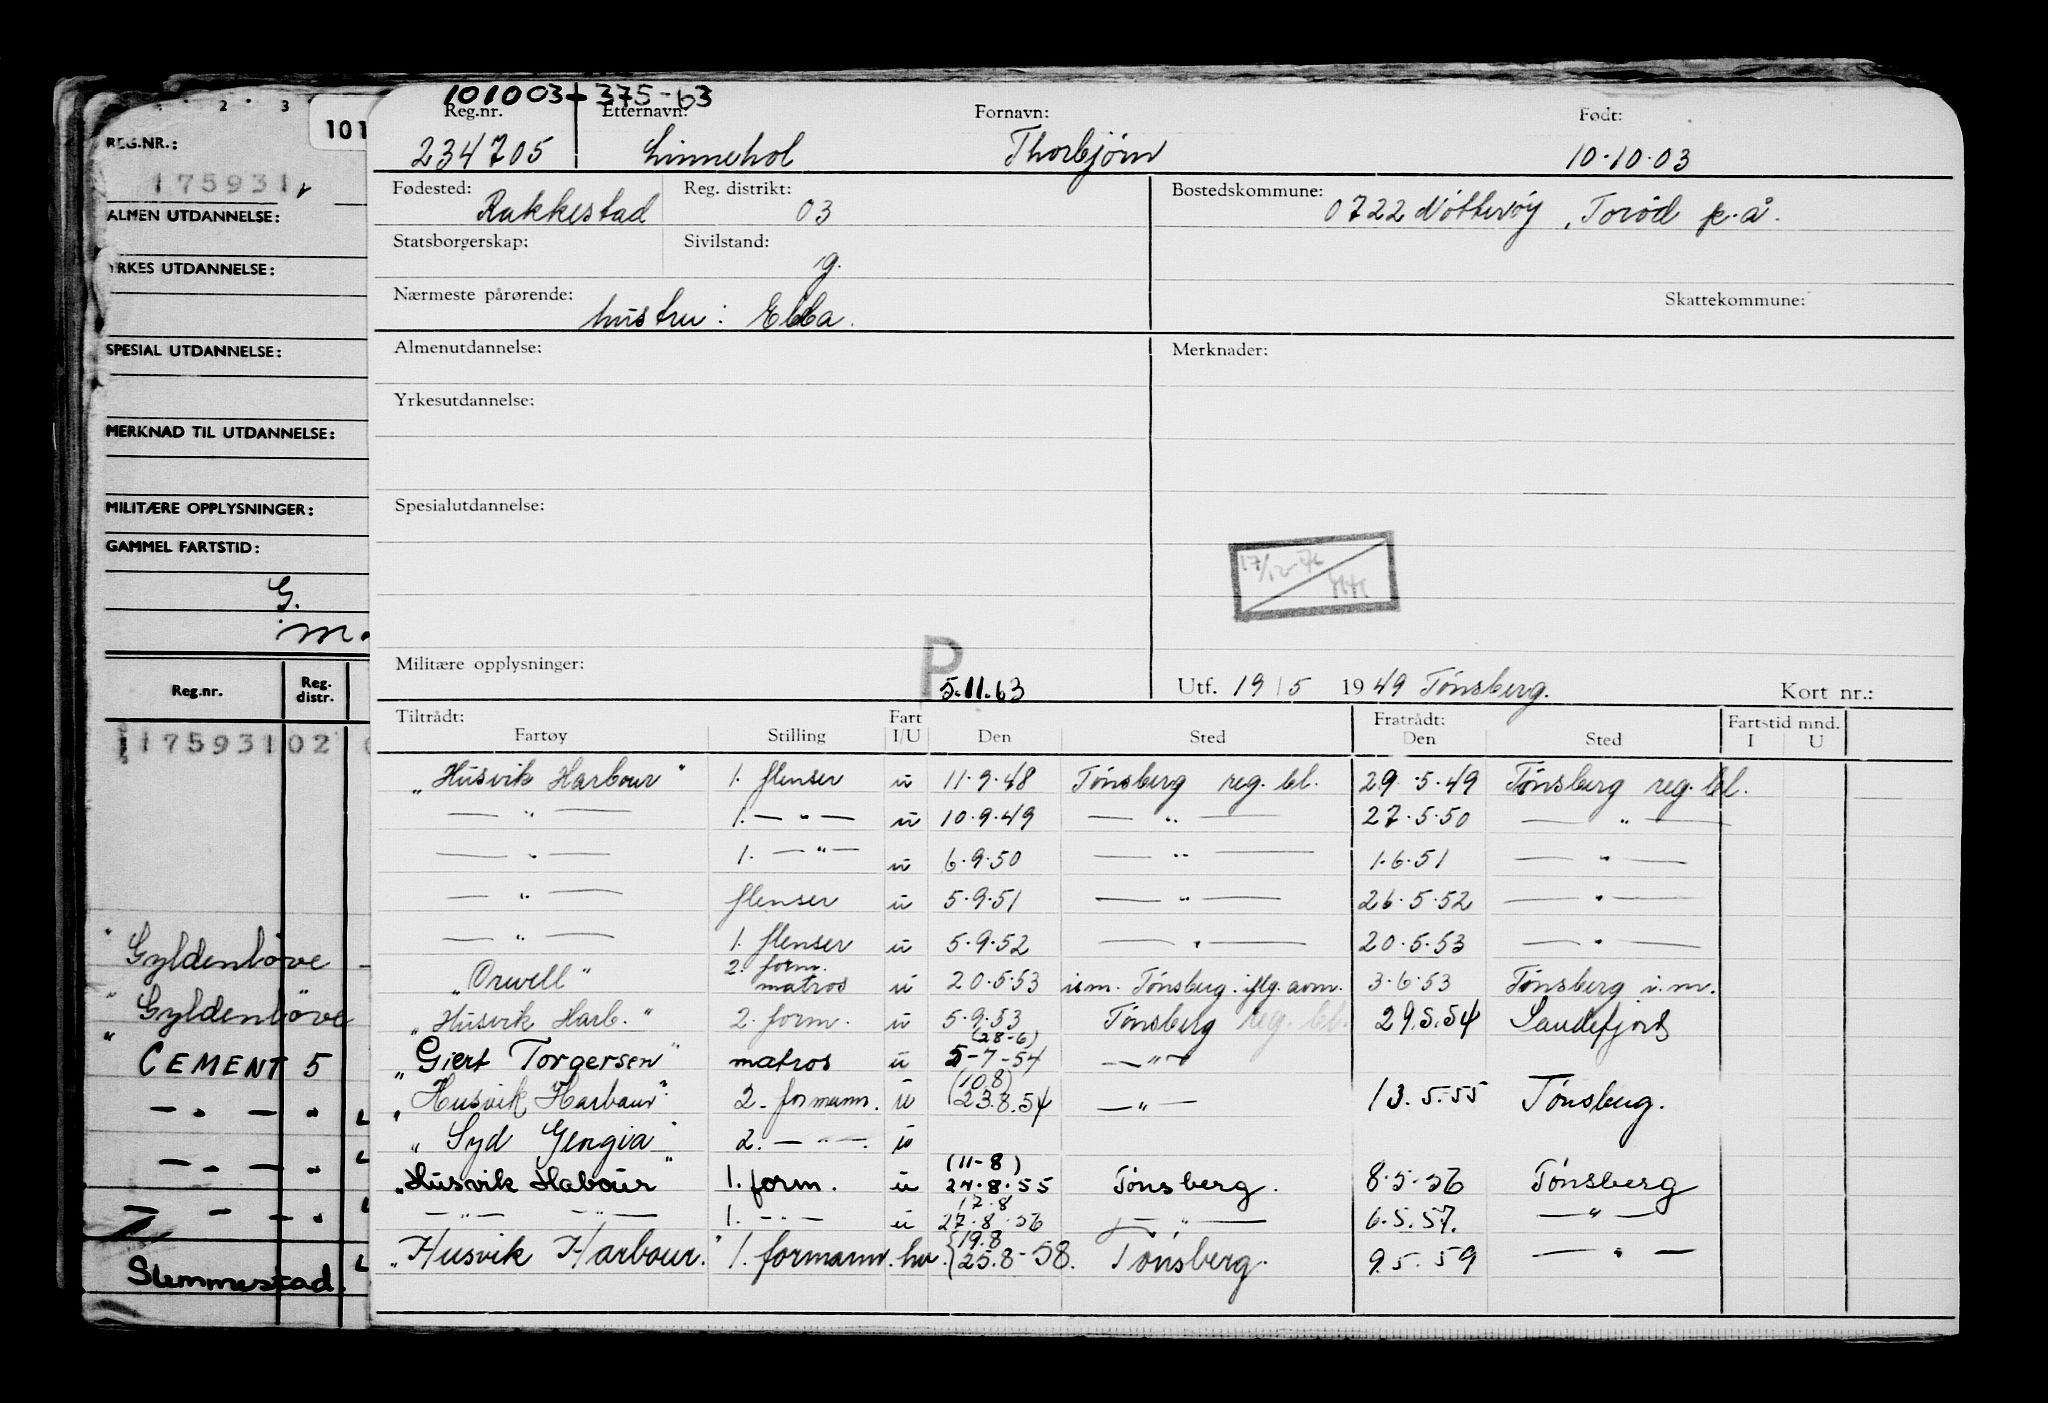 2 3
REG.NR.:
175931
ALMEN UTDANNELSE:
YRKES UTDANNELSE:
SPESIAL UTDANNELSE:
MERKNAD TIL UTDANNELSE:
MILITÆRE OPPLYSNINGER:
GAMMEL FARTSTID:
G.
m.
Reg.nr. Reg. distr.
175931 02
" Gyldenløve
" Gyldenløve
" CEMENT 5
— " — "
— " — "
— " — "
Slemmestad.
101
101003 - 375-63
Reg.nr. Etternavn: Fornavn: Født:
234705 Linnehol Thorbjørn 10.10.03
Fødested: Reg. distrikt: Bostedskommune:
Rakkestad 03 0722 Nøtterøy, Torød p.å.
Statsborgerskap: Sivilstand:
g.
Nærmeste pårørende: Skattekommune:
hustru: Ebba.
Almenutdannelse: Merknader:
Yrkesutdannelse:
Spesialutdannelse:
Militære opplysninger: P 5.11.63 Utf. 19/5 1949 Tønsberg. Kort nr.:
Tiltrådt: Fart Fratrådt: Fartstid mnd.
Fartøy Stilling I/U Den Sted Den Sted I U
"Husvik Harbour" 1. flenser u 11.9.48 Tønsberg reg. bl. 29.5.49 Tønsberg reg. bl.
— " — 1. — " — u 10.9.49 — " — 27.5.50 — " —
— " — 1. — " — u 6.9.50 — " — 1.6.51 — " —
— " — flenser u 5.9.51 — " — 26.5.52 — " —
— " — 1. flenser u 5.9.52 — " — 20.5.53 — " —
"Orwell" 2. form. matros u 20.5.53 i.m. Tønsberg. iflg. avm. 3.6.53 Tønsberg i.m.
"Husvik Harb." 2. form. u 5.9.53 Tønsberg reg. bl. 29.5.54 Sandefjord
"Giert Torgersen" matros u (28-6) 5-7-54 — " —
"Husvik Harbour" 2. formann. u (10.8) 23.8.54 — " — 13.5.55 Tønsberg.
"Syd Gengia" 2. — " — u
"Husvik Habour" 1. form. u (11-8) 24.8.55 Tønsberg. 8.5.56 Tønsberg
— " — — " — 1. — " — u 17.8 27.8.56 — " — 6.5.57. — " —
"Husvik Harbour." 1. formann. hv. 19.8 25.8-58. Tønsberg. 9.5.59 — " —